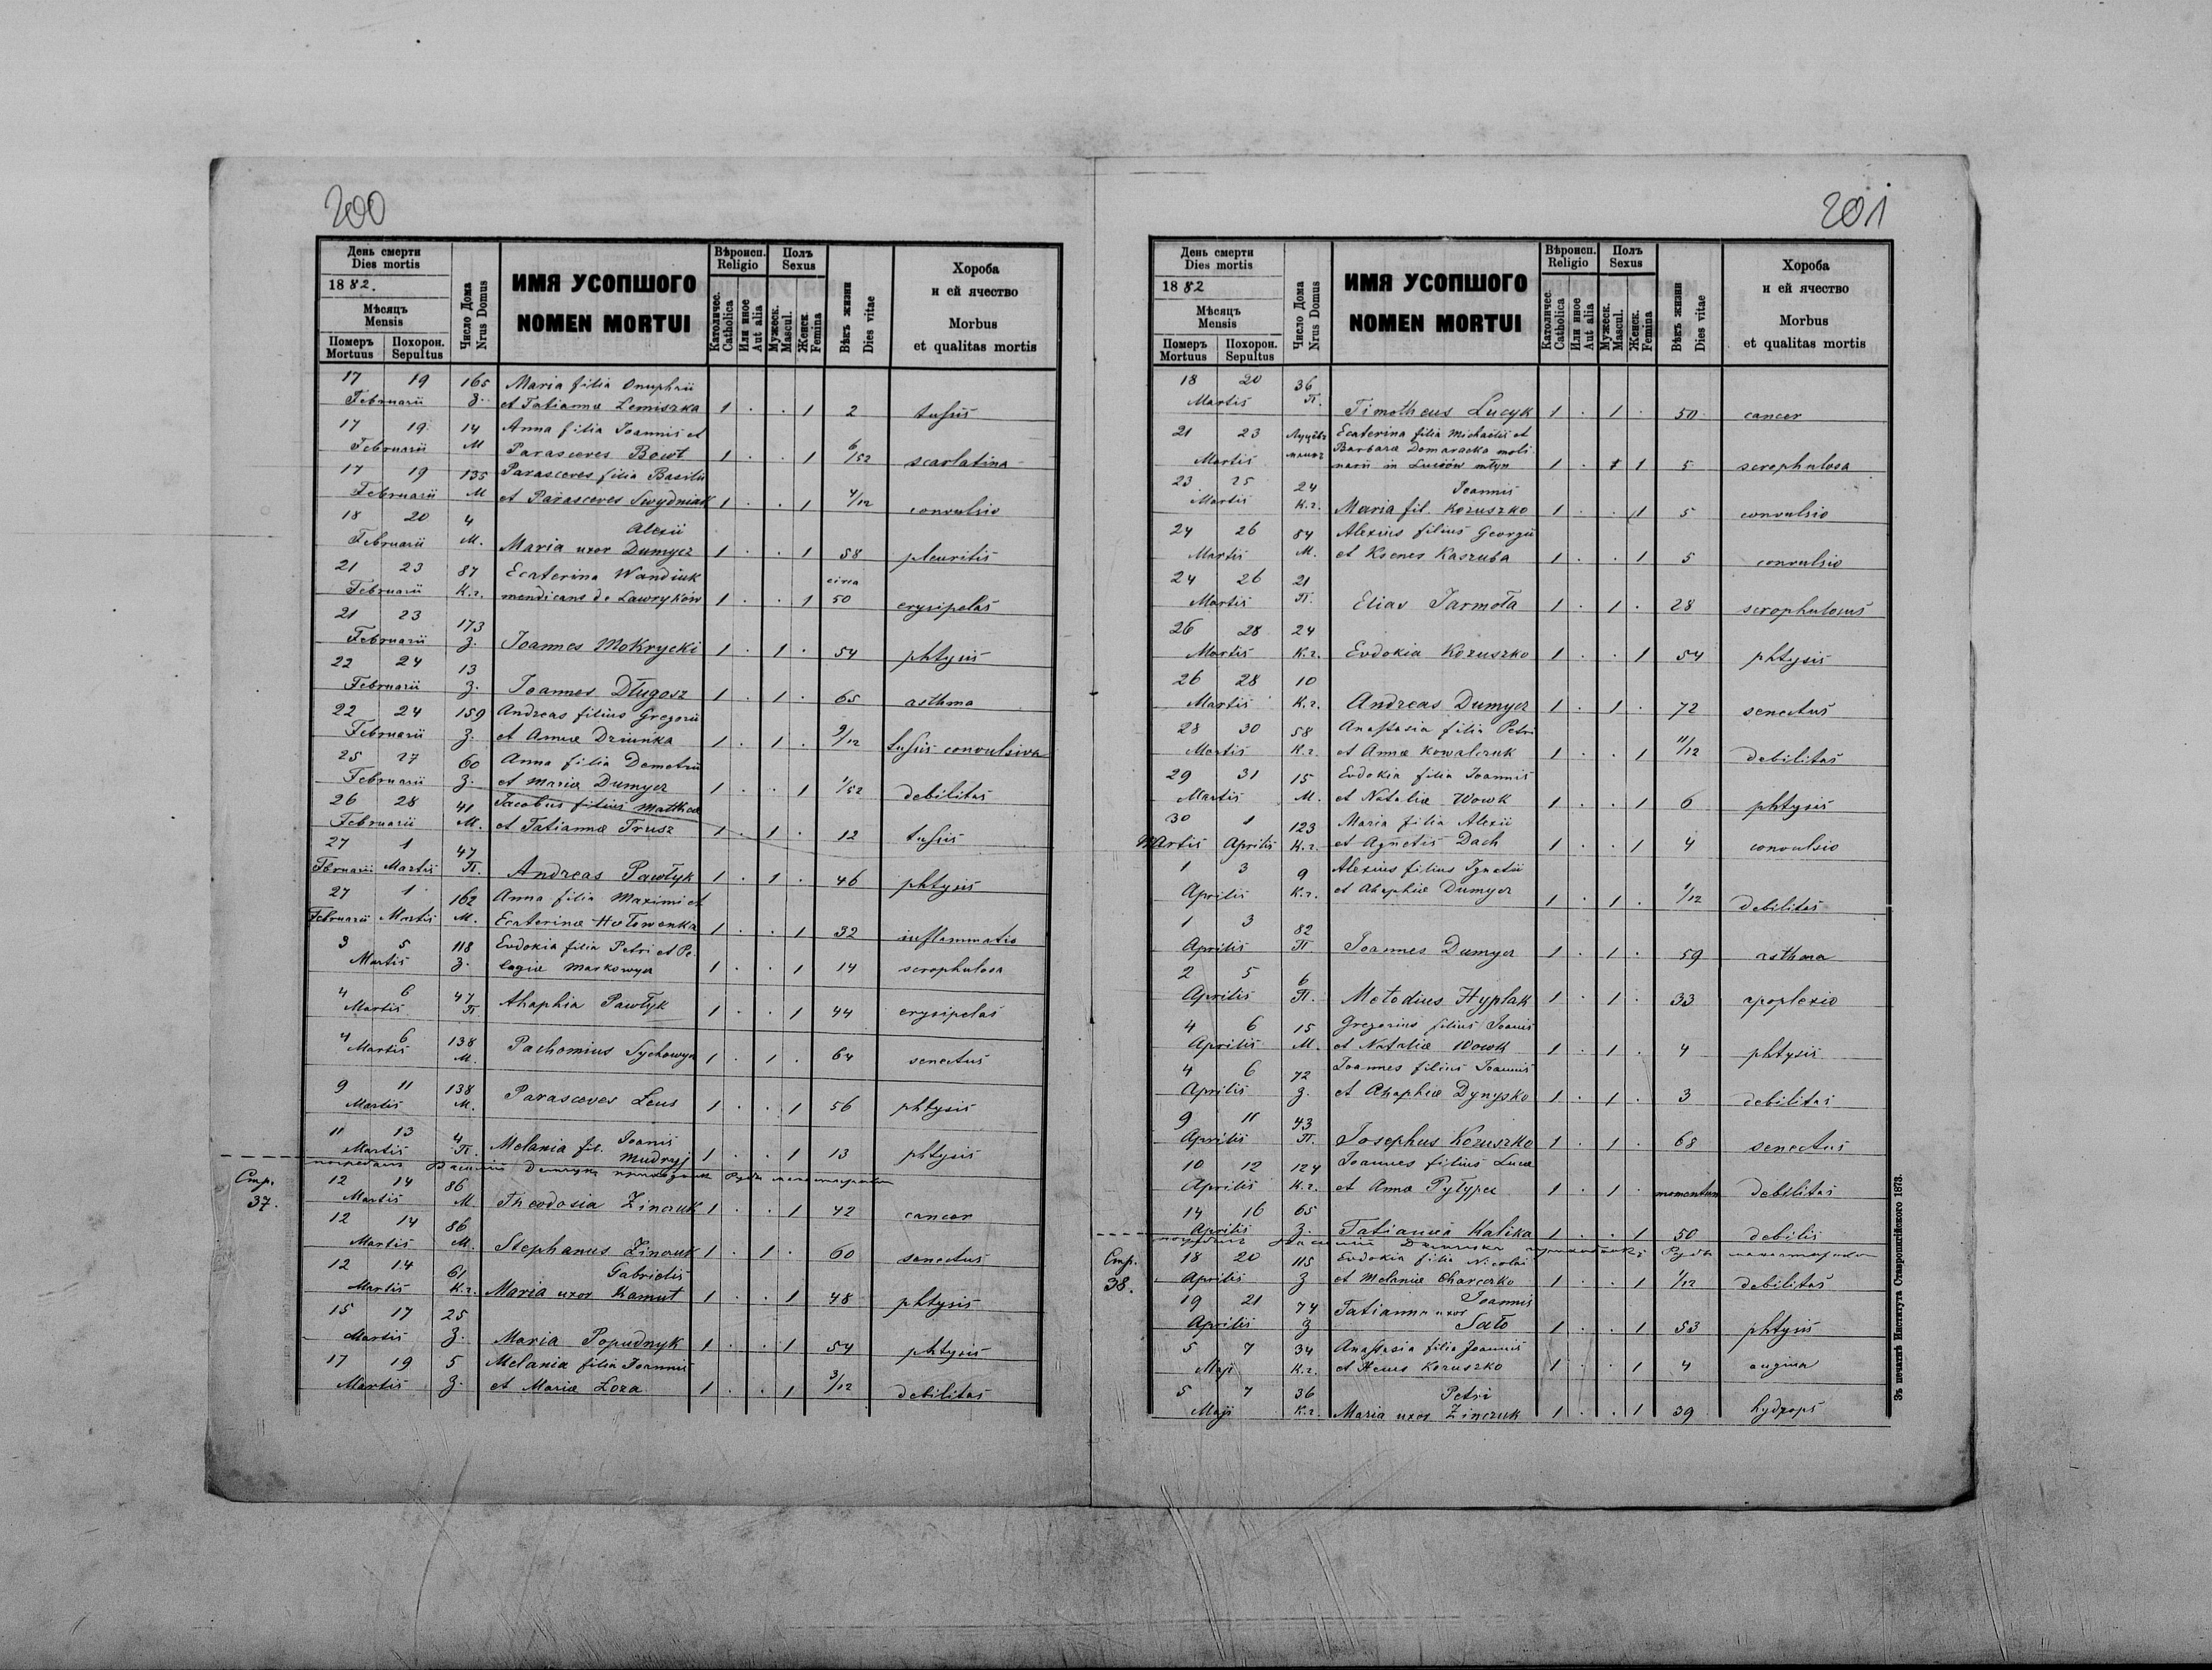 200
День смерти
Dies mortis
1882.
Мѣсяцъ
Mensis
Померъ Похорон.
Mortuus Sepultus
Число Дома
Nrus Domus
ИМЯ УСОПШОГО
NOMEN MORTUI
Вѣроисп.
Religio
Католичес.
Catholica
Или иное
Aut alia
Полъ
Sexus
Мужеск.
Mascul.
Женск.
Femina
Вѣкъ жизни
Dies vitae
Хороба
и ей ячество
Morbus
et qualitas mortis
17 19 165 Maria filia Onuphrii
Februarii З. et Tatianna Lemiszka 1 . . 1 2 tussis
17 19 14 Anna filia Joannis et
Februarii М Parasceves Bowt 1 . . 1 6/52 scarlatina
17 19 135 Parasceves filia Basilii
Februarii М et Parasceves Swydniak 1 . . 1 4/12 convulsio
18 20 4 Alexii
Februarii М. Maria uxor Dumycz 1 . . 1 58 pleuritis
21 23 87 Ecaterina Wandiuk circa
Februarii К.г. mendicans de Lawryków 1 . . 1 50 erysipelas
21 23 173
Februarii З. Joannes Mokrycki 1 . 1 . 54 phtysis
22 24 13
Februarii З. Joannes Długosz 1 . 1 . 65 asthma
22 24 159 Andreas filius Gregorii
Februarii З. et Annae Dziunka 1 . 1 . 9/12 tussis convulsiva
25 27 60 Anna filia Demetrii
Februarii З. et Mariae Dumycz 1 . . 1 1/52 debilitas
26 28 41 Jacobus filius Matthaei
Februarii М. et Tatiannae Trusz 1 . 1 . 12 tussis
27 1 47
Februarii Martis П. Andreas Pawłyk 1 . 1 . 46 phtysis
27 1 162 Anna filia Maximi et
Februarii Martis М. Ecaterinae Hołowenka 1 . . 1 32 inflammatio
3 5 118 Eudokia filia Petri et Pe-
Martis З. lagiae Markowycz 1 . . 1 14 scrophulosa
4 6 47 Ahaphia Pawłyk
Martis П 1 . . 1 44 erysipelas
4 6 138 Pachomius Sychowycz
Martis М. 1 . 1 . 64 senectus
9 11 138 Parasceves Leus
Martis М. 1 . . 1 56 phtysis
11 13 4 Melania fil. Joanis
Martis П. Mudryj 1 . . 1 13 phtysis
Стр.
37.
12 14 86
Martis М Theodosia Zinczuk 1 . . 1 42 cancer
12 14 86
Martis М. Stephanus Zinczuk 1 . 1 . 60 senectus
12 14 61 Gabrielis
Martis К.г. Maria uxor Kamut 1 . . 1 48 phtysis
15 17 25
Martis З. Maria Popudnyk 1 . . 1 54 phtysis
17 19 5 Melania filia Joannis
Martis З. et Mariae Łoza 1 . . 1 3/12 debilitas
201
День смерти
Dies mortis
1882
Мѣсяцъ
Mensis
Померъ Похорон.
Mortuus Sepultus
Число Дома
Nrus Domus
ИМЯ УСОПШОГО
NOMEN MORTUI
Вѣроисп.
Religio
Католичес.
Catholica
Или иное
Aut alia
Полъ
Sexus
Мужеск.
Mascul.
Женск.
Femina
Вѣкъ жизни
Dies vitae
Хороба
и ей ячество
Morbus
et qualitas mortis
18 20 36
Martis П. Timotheus Lucyk 1 . 1 . 50 cancer
21 23 Ecaterina filia Michaelis et
Barbarae Domaracka moli-
Martis narii in Luciów młyn 1 . 1 5 scrophulosa
23 25 24 Joannis
Martis К.г. Maria fil. Kozuszko 1 . . 1 5 convulsio
24 26 84 Alexius filius Georgii
Martis М. et Ksenes Kaszuba 1 . . 1 5 convulsio
24 26 21
Martis П. Elias Jarmoła 1 . 1 . 28 scrophulosus
26 28 24
Martis К.г. Eudokia Kozuszko 1 . . 1 54 phtysis
26 28 10
Martis К.г. Andreas Dumycz 1 . 1 . 72 senectus
28 30 58 Anastasia filia Petri
Martis К.г. et Annae Kowalczuk 1 . . 1 11/12 debilitas
29 31 15 Eudokia filia Joannis
Martis М. et Nataliae Wowk 1 . . 1 6 phtysis
30 1 123 Maria filia Alexii
Martis Aprilis К.г. et Agnetis Dach 1 . . 1 4 convulsio
1 3 9 Alexius filius Ignatii
Aprilis К.г. et Ahaphiae Dumycz 1 . 1 . 1/12 debilitas
1 3 82
Aprilis П. Joannes Dumycz 1 . 1 . 59 asthma
2 5 6
Aprilis П. Metodius Hyplak 1 . 1 . 33 apoplexio
4 6 15 Gregorius filius Joanis
Aprilis М. et Nataliae Wowk 1 . 1 . 4 phtysis
4 6 72 Joannes filius Joannis
Aprilis З. et Ahaphiae Dynysko 1 . 1 . 3 debilitas
9 11 43
Aprilis П. Josephus Kozuszko 1 . 1 . 68 senectus
10 12 124 Joannes filius Lucae
Aprilis К.г. et Annae Pylypec 1 . 1 . momentum debilitas
14 16 65
Aprilis З. Tatianna Kalika 1 . . 1 50 debilis
Стр.
38.
18 20 115 Eudokia filia Nicolai
Aprilis З et Melaniae Charczko 1 . . 1 1/12 debilitas
19 21 74 Tatianna uxor Joannis
Aprilis З Sało 1 . . 1 53 phtysis
5 7 34 Anastasia filia Joannis
Maji К.г. et Kozuszko 1 . . 1 4 angina
5 7 36 Petri
Maji К.г. Maria uxor Zinczuk 1 . . 1 39 hydrops
Зъ печатнѣ Института Ставропигійского 1873.